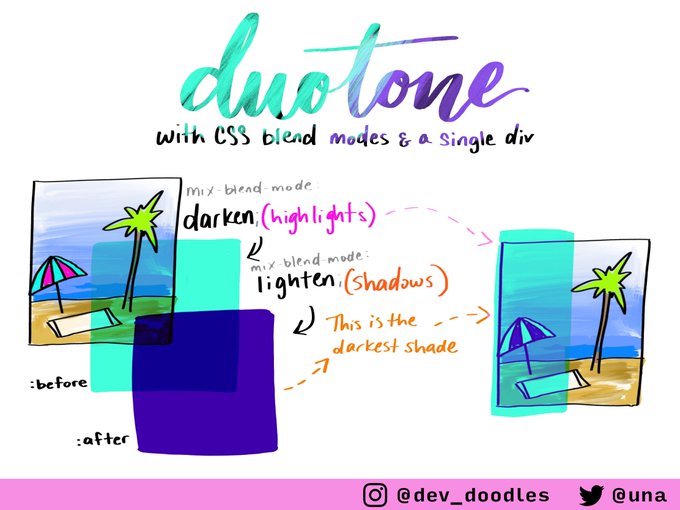 duotone
with CSS blend modes & a single div
mix-blend-mode:
darken; (highlights)
mix-blend-mode:
lighten; (shadows)
This is the
darkest shade
:before
:after
@dev_doodles @una